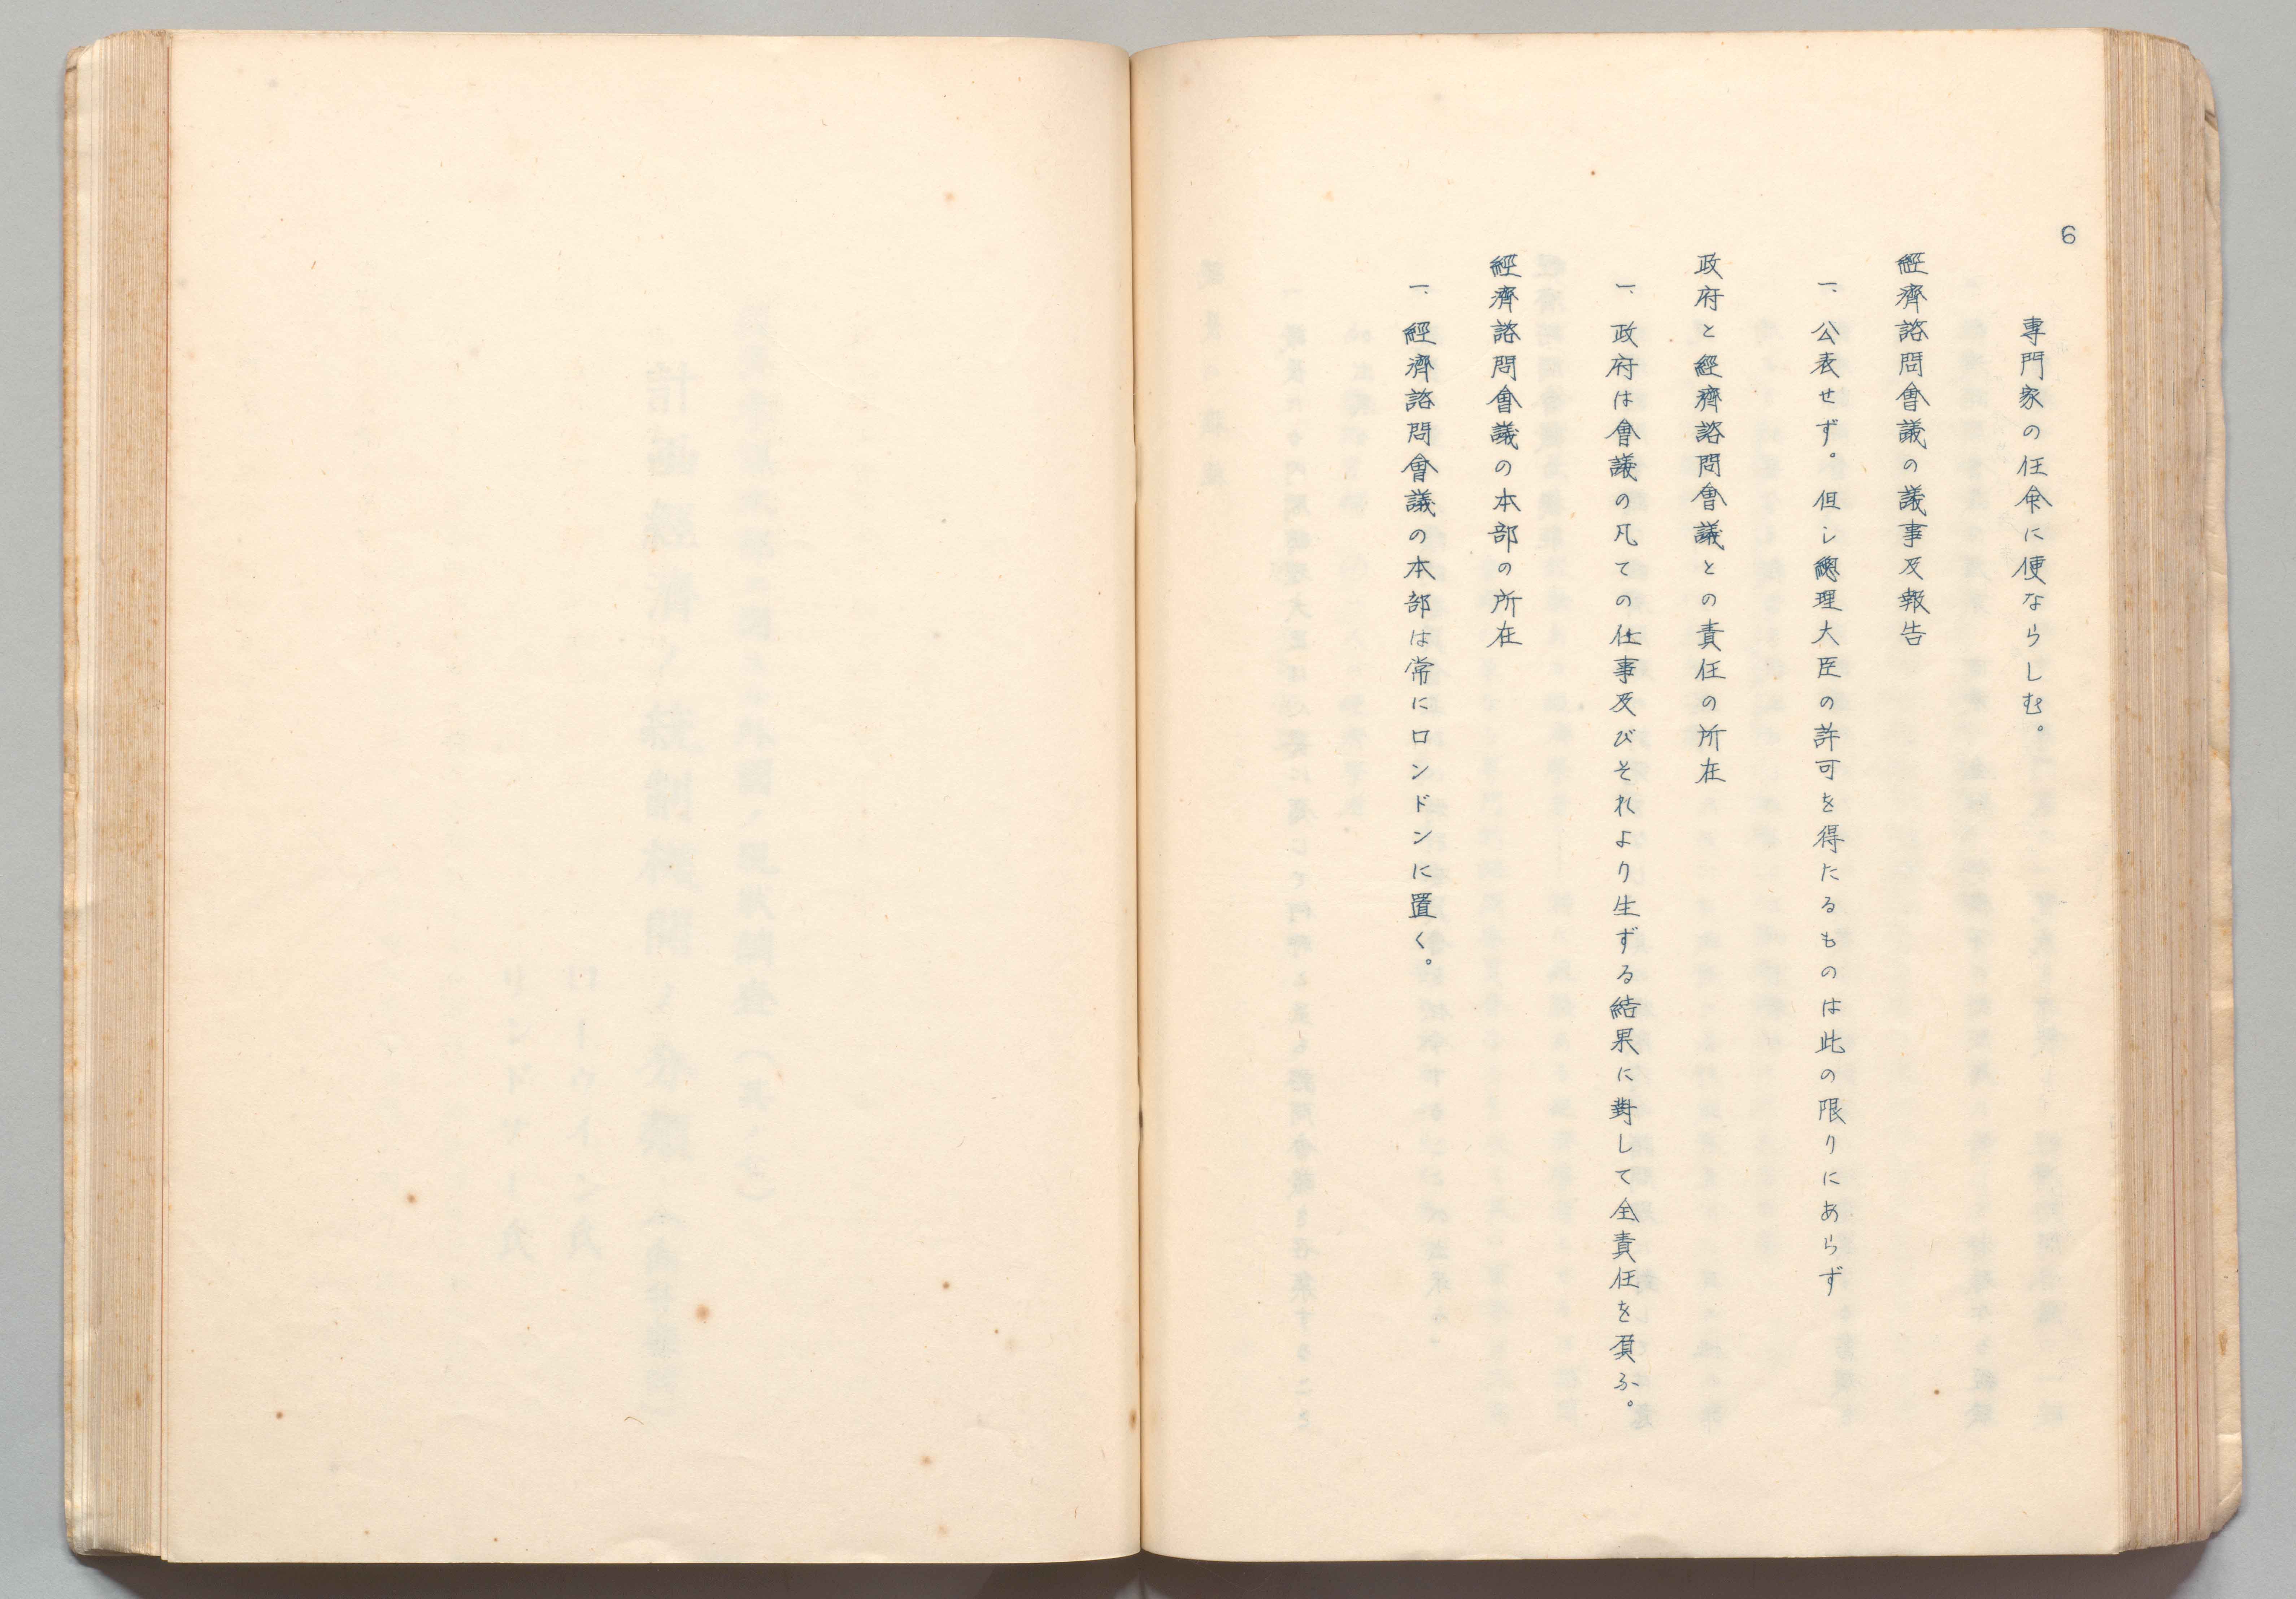 6
專門家の任命に便ならしむ。
經濟諮問會議の議事及報告
一、公表せず。但し總理大臣の許可を得たるものは此の限りにあらず
政府と經濟諮問會議との責任の所在
一、政府は會議の凡ての仕事及びそれより生ずる結果に對して全責任を負ふ。
經濟諮問會議の本部の所在
一、經濟諮問會議の本部は常にロンドンに置く。